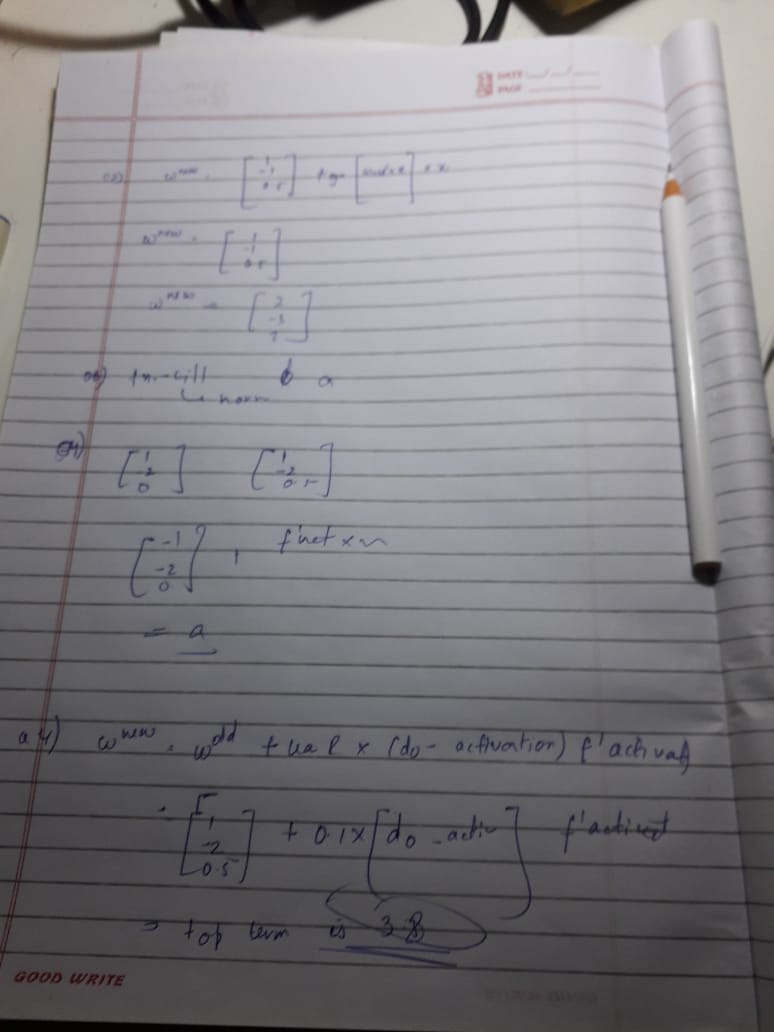 DATE __/__/__
PAGE
w^new = [1 -1 0.5] + sgn [ ] x x
w^new = [1 -1 0.5]
w^new = [2 -3 2]
a
↳ norm
[1 -2 0] [1 -2 0.5]
[-1 -2 0] , f'net x
= a
a 4) w^new = w^old + val x (do - activation) f'activat
= [1 -2 0.5] + 0.1 x [do - activ] f'activat
= top term is 3.8
GOOD WRITE